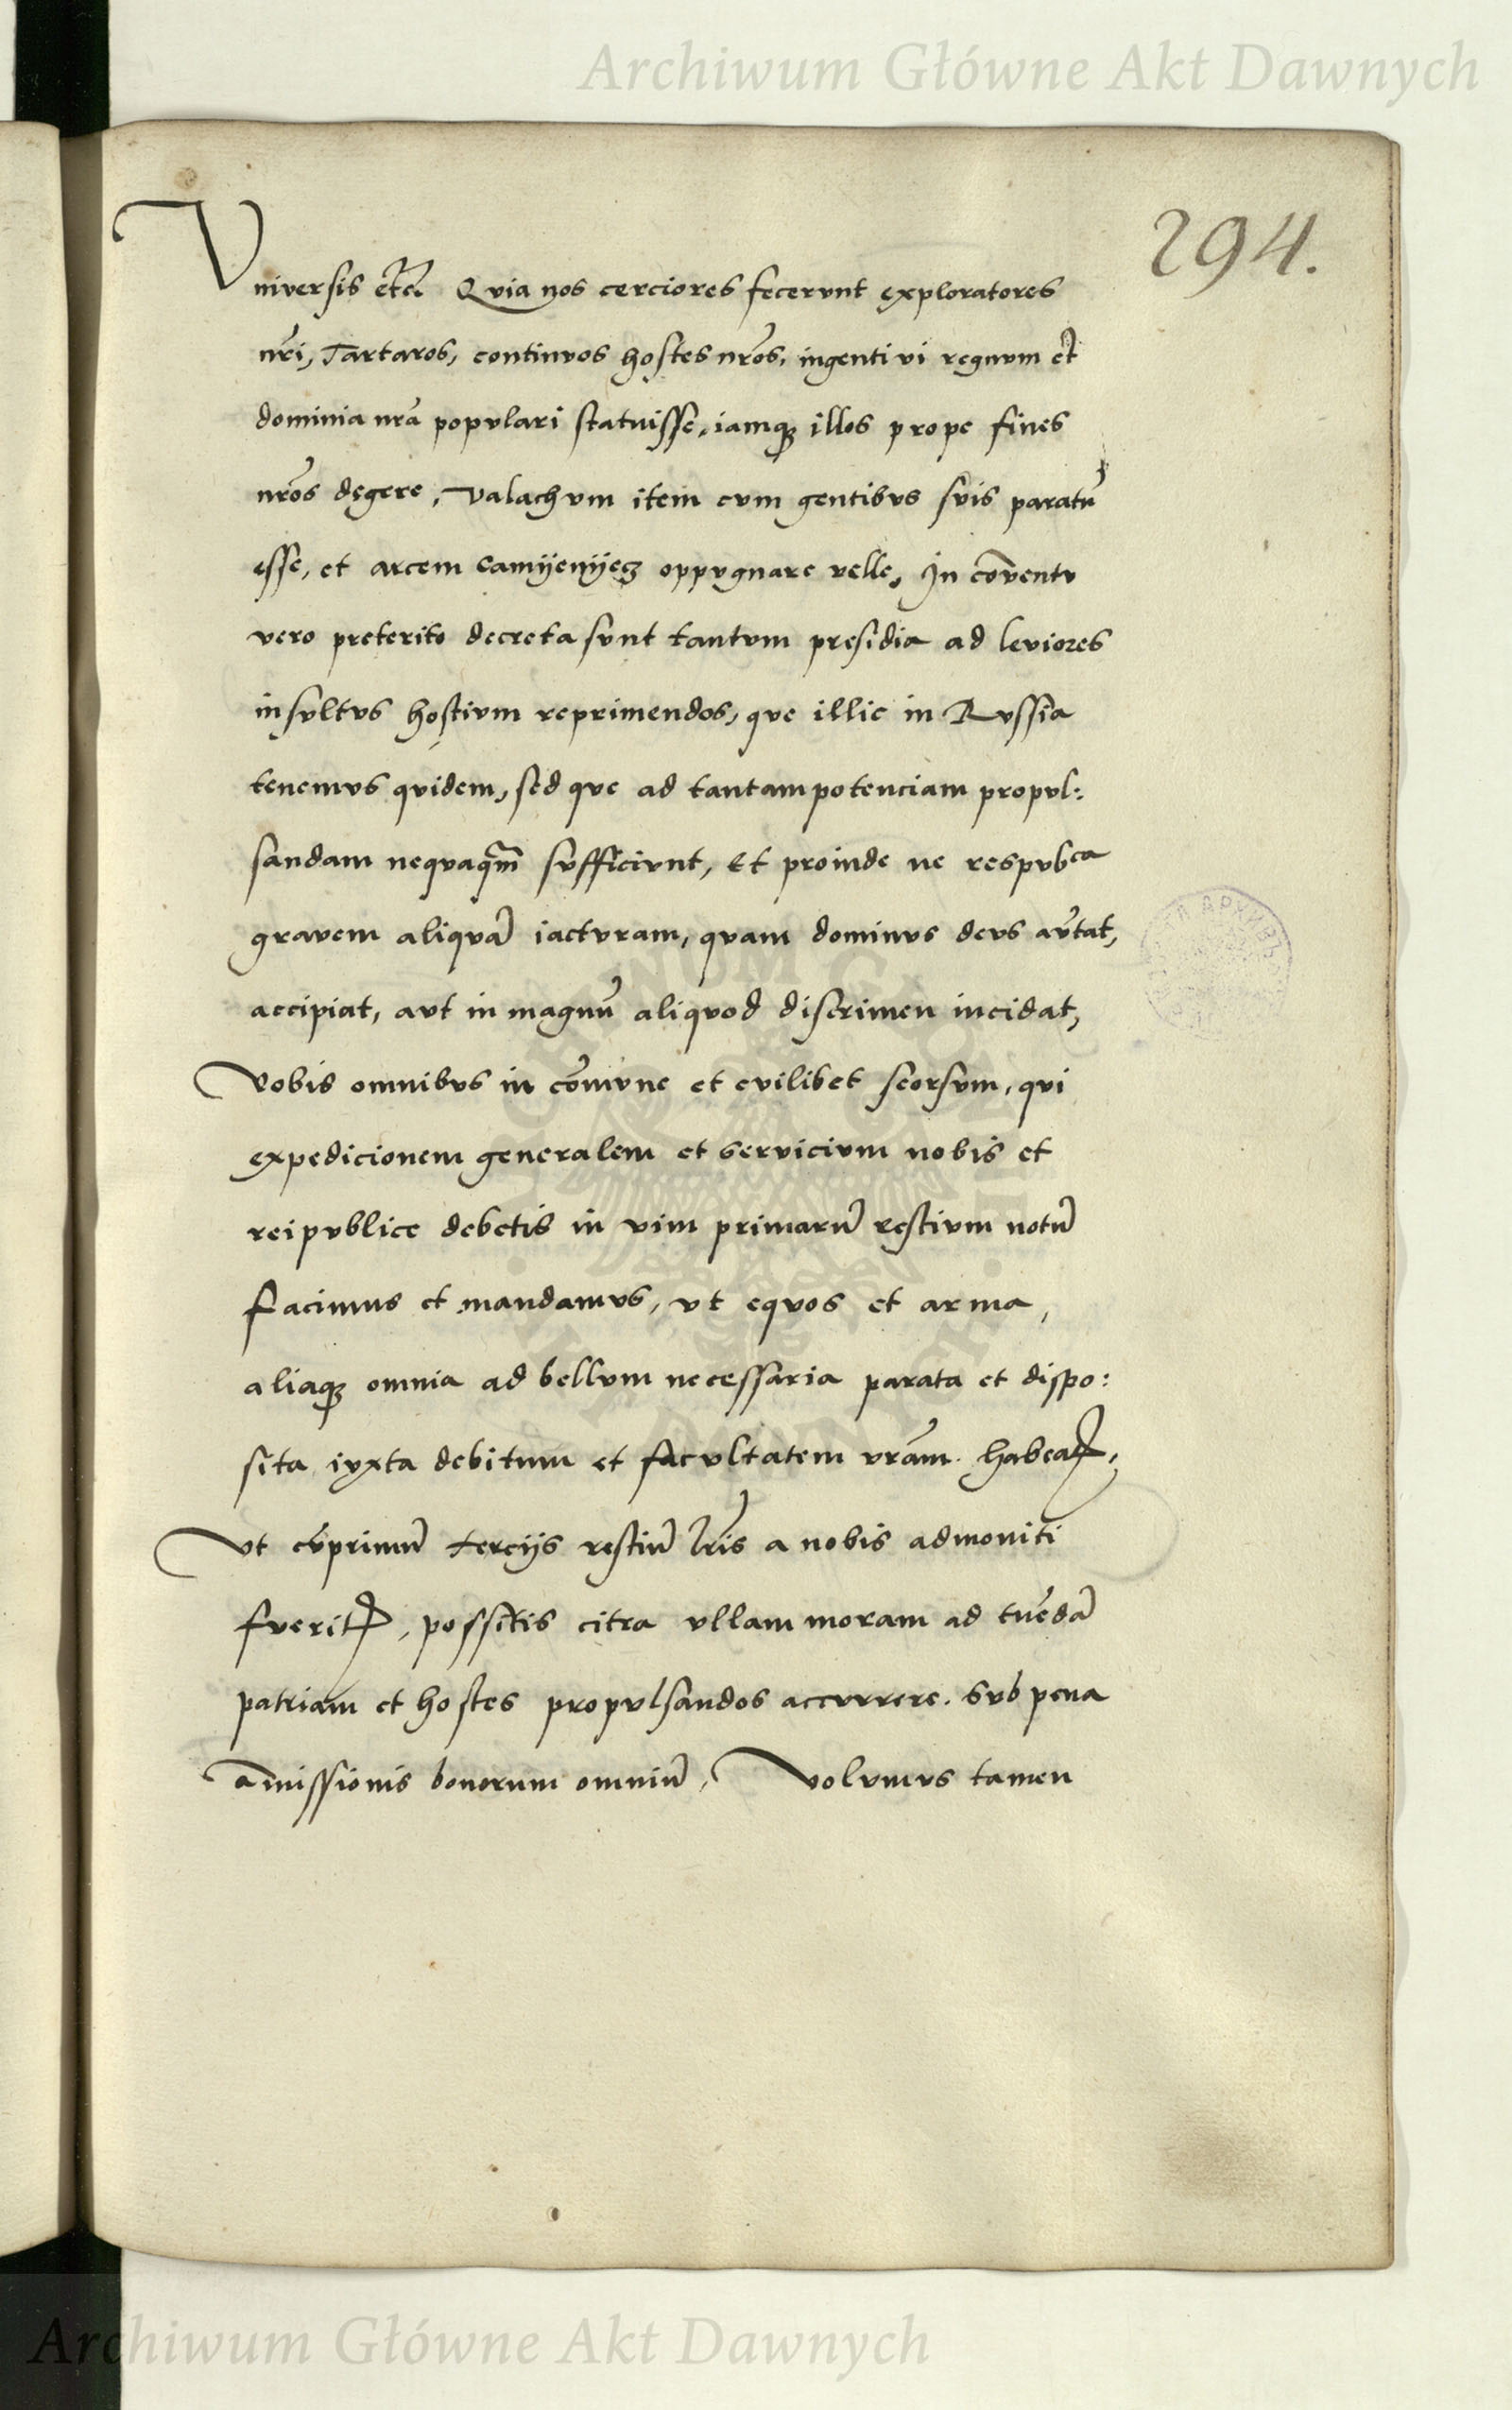 Archiwum Główne Akt Dawnych
294.
Vniversis etc̃. Qvia nos cerciores fecervnt exploratores
nr̃i, Tartaros, continvos hostes nr̃os, ingenti vi regnvm et
dominia nr̃a popvlari statuisse, iamq; illos prope fines
nr̃os degere, Valachvm item cvm gentibvs svis paratū
esse, et arcem Camyenyecz oppvgnare velle, In cōventv
vero preterito decreta svnt tantvm presidia ad leviores
insvltvs hostivm reprimendos, qve illic in Rvssia
tenemvs qvidem, sed qve ad tantam potenciam propvl:
sandam neqvaqm̃ svfficivnt, Et proinde ne respvbca
gravem aliqvā iactvram, qvam dominvs devs av̄tat,
accipiat, avt in magnū aliqvod discrimen incidat,
Vobis omnibvs in cōmvne et cvilibet seorsvm, qvi
expedicionem generalem et servicivm nobis et
reipvblice debetis in vim primarū restivm notū
facimus et mandamvs, vt eqvos et arma,
aliaq; omnia ad bellvm necessaria parata et dispo:
sita ivxta debitum et facvltatem vr̃am habeatꝭ,
Vt cv̄primū tercijs restiū lr̃is a nobis admoniti
fveritꝭ, possitis citra vllam moram ad tuēdā
patriam et hostes propvlsandos accvrrere. Svb pena
amissionis bonorum omniū, Volvmvs tamen
Archiwum Główne Akt Dawnych